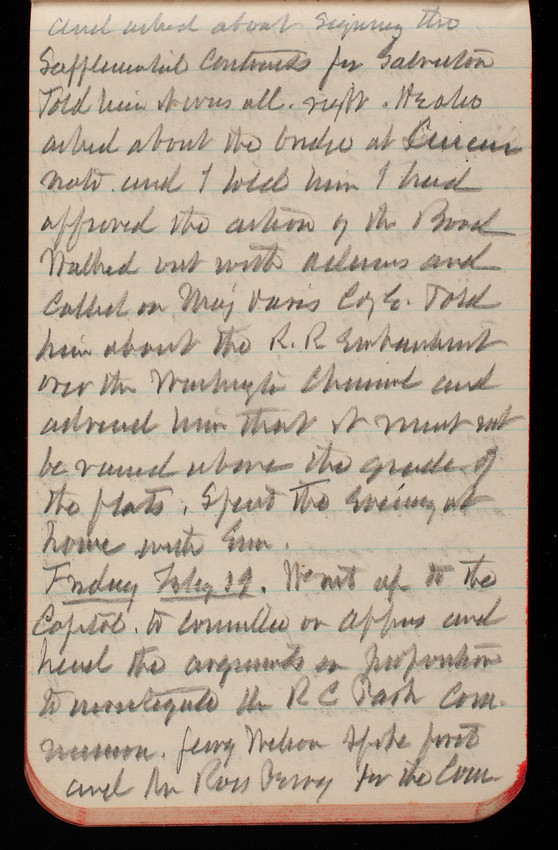 and asked about signing the
Supplemental Contracts for Galveston
Told him it was all right. He also
asked about the bridge at Cincin
nati and I told him I had
approved the action of the Board
Walked out with Adams and
Called on Maj Davis C of E. Told
him about the R.R Embankment
over the Washington Channel and
advised him that it must not
be raised above the grade of
the flats. Spent the Evening at
home with Em.
Friday Feby 19. Went up to the
Capitol. to committee on Appns and
heard the arguments on proposition
to investigate the R C Park Com-
mission. Genl Nelson spoke first
and Mr Ross Perry for the Com